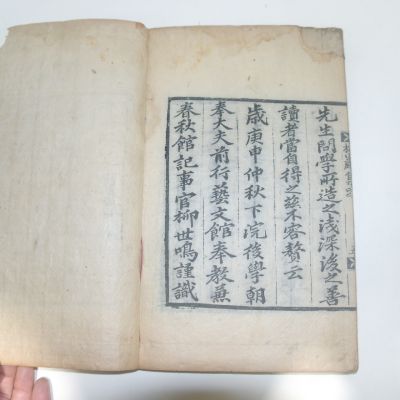 先生問學所造之淺深後之善
讀者當自得之玆不容贅云
歲庚申仲秋下浣後學朝
奉大夫前行藝文館奉敎兼
春秋館記事官柳世鳴謹識